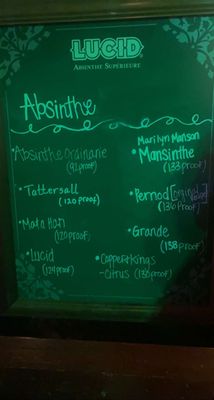 LUCID
ABSINTHE SUPÉRIEURE
Absinthe
• Absinthe Ordinaire
(92 proof)
• Tattersall
(120 proof)
• Mata Hari
(120 proof)
• Lucid
(124 proof)
Marilyn Manson
• Mansinthe
(133 proof)
• Pernod
(136 proof)
• Grande
(138 proof)
• Copper & Kings
- Citrus (130 proof)